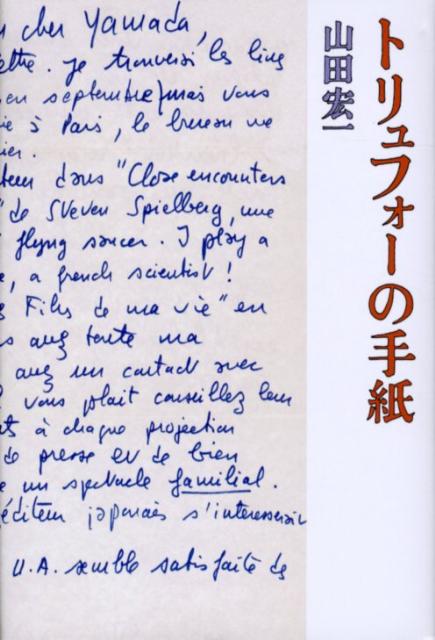 トリュフォーの手紙
山田宏一
cher Yamada,
je trouverai les
en septembre) mais vous
à Paris, le bureau
dans "Close encounters
" de Steven Spielberg, une
flying saucer. I play a
, a french scientist !
Films de ma vie" en
toute ma
un contact avec
vous plait conseillez leur
à chaque projection
de presse et de bien
un spectacle familial.
éditeur japonais s'intéresserait
U.A. semble satisfaite de